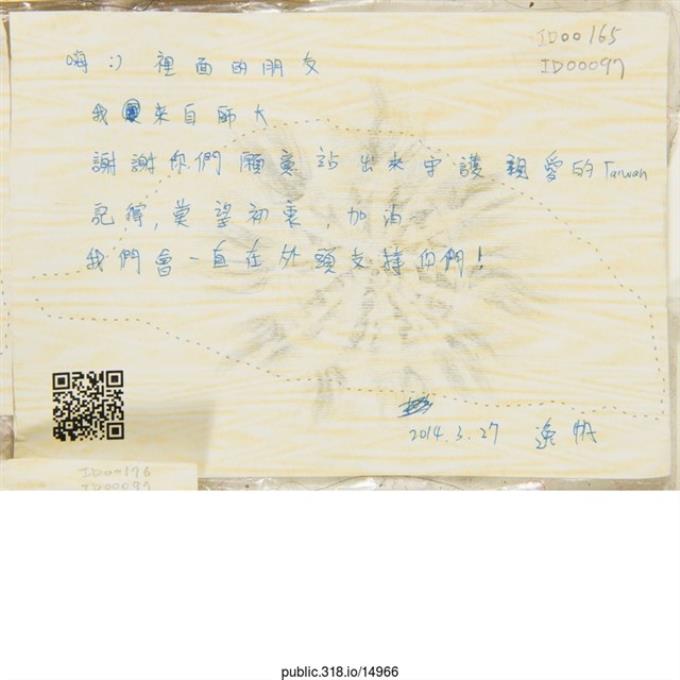 ID00165
ID00097
嗨 :) 裡面的朋友
我來自師大
謝謝你們願意站出來守護親愛的Taiwan
記得, 莫忘初衷, 加油
我們會一直在外頭支持你們!
2014.3.27 逸帆
ID00176
ID00097
public.318.io/14966